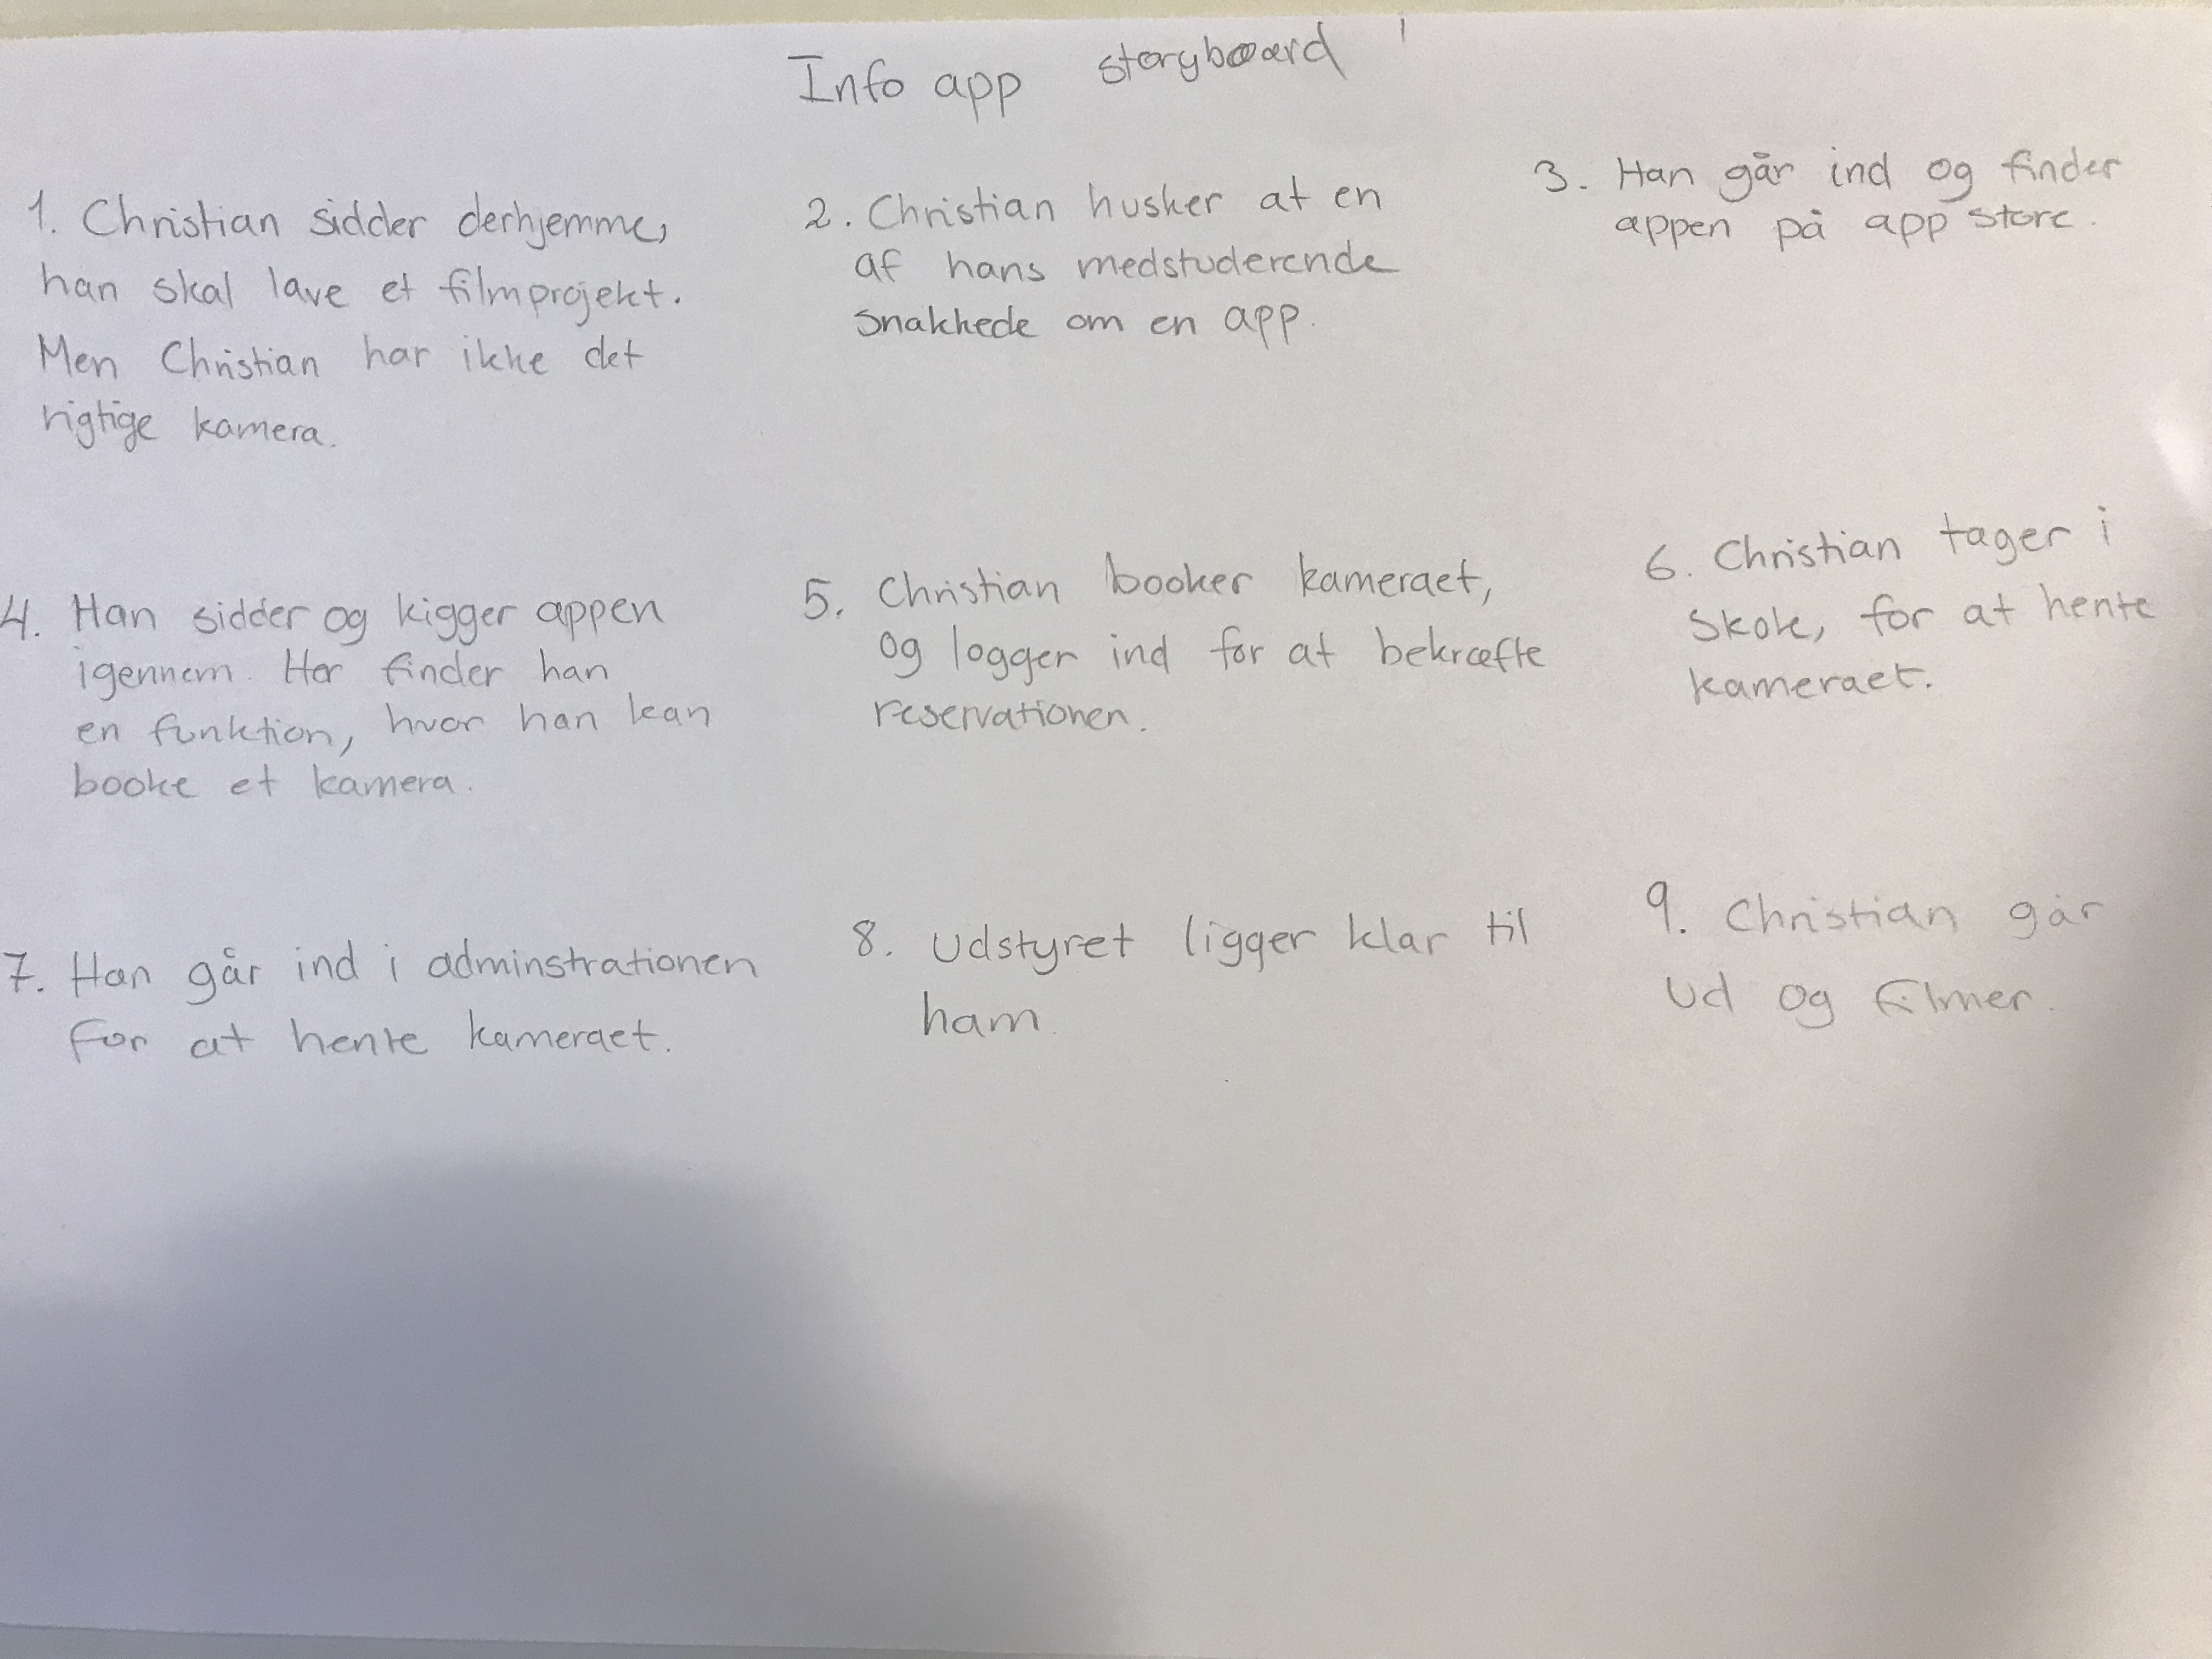 Info app storyboard
1. Christian sidder derhjemme,
han skal lave et filmprojekt.
Men Christian har ikke det
rigtige kamera.
2. Christian husker at en
af hans medstuderende
snakkede om en app.
3. Han går ind og finder
appen på app store.
4. Han sidder og kigger appen
igennem. Her finder han
en funktion, hvor han kan
booke et kamera.
5. Christian booker kameraet,
og logger ind for at bekræfte
reservationen.
6. Christian tager i
skole, for at hente
kameraet.
7. Han går ind i adminstrationen
for at hente kameraet.
8. Udstyret ligger klar til
ham.
9. Christian går
ud og filmer.